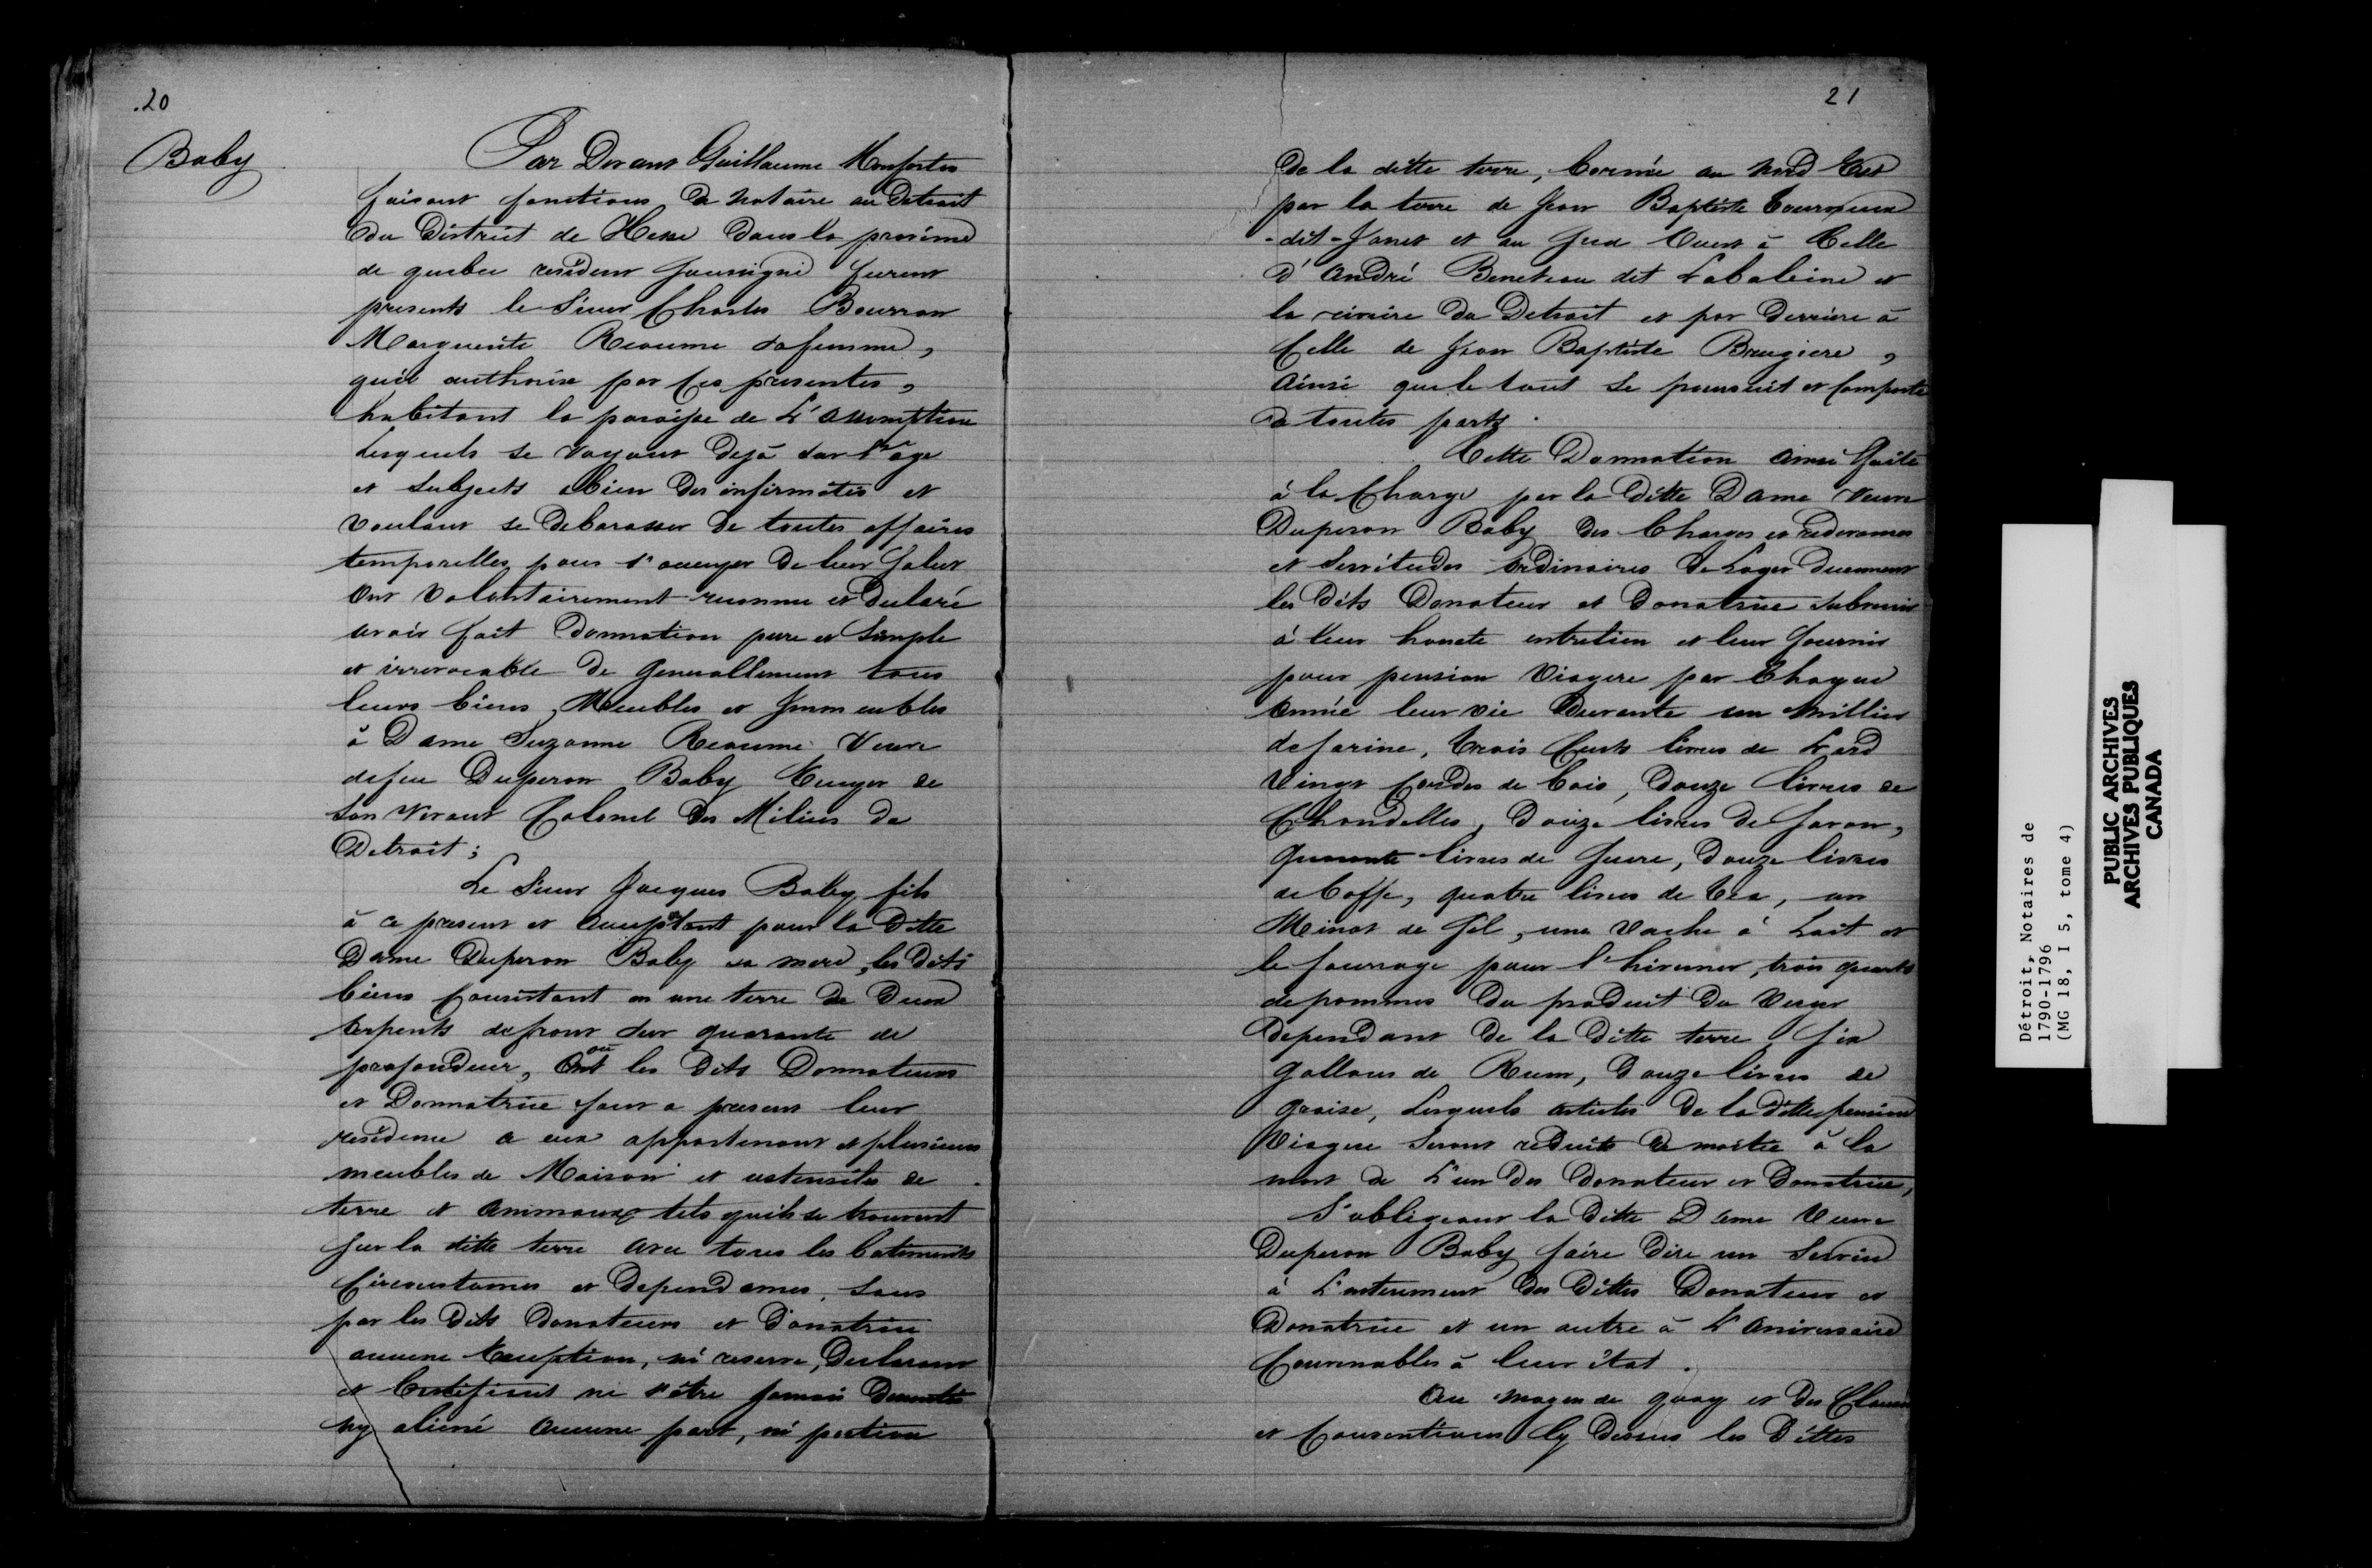 .20
Baby
Par Devant Guillaume Monforton
faisant fonctions de notaire au Detroit
du District de Hesse dans la province
de quebec resident soussigné furent
presents le Sieur Charles Bourron
Marguerite Reaume sa femme,
qu'il authorise par ces presentes,
habitant la paroisse de L'assomption
Lesquels se voyant deja sur l'age
et Subjects a bien des infirmités et
voulant se debarasser de toutes affaires
temporelles pour s'occuper de leur Salut
ont volontairement reconnu et declaré
avoir fait Donnation pure et Simple
et irrevocable de generallement tous
leurs biens, Meubles et Immeubles
à Dame Suzanne Reaume Veuve
de feu Duperon Baby Ecuyer de
son vivant Colonel des Milices du
Detroit;
Le Sieur Jacques Baby fils
à ce present et acceptant pour la Ditte
Dame Duperon Baby sa mere, les dits
biens Consistant en une terre de deux
arpents de front sur quarante de
profondeur, ou les dits Donnateurs
et Donnatrice font a present leur
residence a eux appartenant et plusieurs
meubles de Maison et ustensiles de
terre et animaux tels qu'ils se trouvent
sur la ditte terre avec tous les batiments
Circonstances et dependances, sans
par les dits Donateurs et Donatrice
aucune Exception, ni reserve, Declarant
et Certifiant ne s'être jamais
ny aliené aucune part, ni portion
21
de la ditte terre, bornée au Nord Est
par la terre de Jean Baptiste Tourneux
-dit-Janet et au Sud Ouest à Celle
d'André Beneteau dit Labaleine et
la riviere du Detroit et par derriere à
Celle de Jean Baptiste Brugiere,
ainsi que le tout se poursuit et Comporte
de toutes parts.
Cette Donnation ainsi faite
à la Charge par la ditte Dame Veuve
Duperon Baby des Charges et redevances
et Servitudes ordinaires de Loger duement
les dits Donateur et Donatrice subvenir
à leur honete entretien et leur fournir
pour pension Viagere par Chaque
année leur vie Durante un Millier
de farine, trois Cents livres de Lard
Vingt Cordes de bois, Douze livres de
Chandelles, Douze livres de Savon,
quarante livres de Sucre, Douze livres
de Caffe, quatre livres de Tea, un
Meinot de Sel, une Vache à Lait et
le fourrage pour l'hiverner, trois quarts
de pommes du produit du Verger
dependant de la ditte terre, six
gallons de Rum, Douze livres de
graise, Lesquels articles de la ditte pension
Viagere seront reduits de moitié à la
mort de L'un des Donateur et Donatrice,
S'obligeant la ditte Dame Veuve
Duperon Baby faire dire un Service
à L'enterement des dittes Donateur et
Donatrice et un autre à L'aniversaire
Convenables à leur état.
Au moyen de quoy et des Clauses
et Conventions Cy dessus les dittes
Détroit, Notaires de
1790-1796
(MG 18, I 5, tome 4)
PUBLIC ARCHIVES
ARCHIVES PUBLIQUES
CANADA